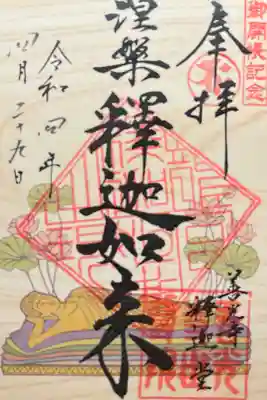 御開帳記念
奉拝
涅槃釋迦如来
令和四年
四月二十九日
善光寺
釋迦堂